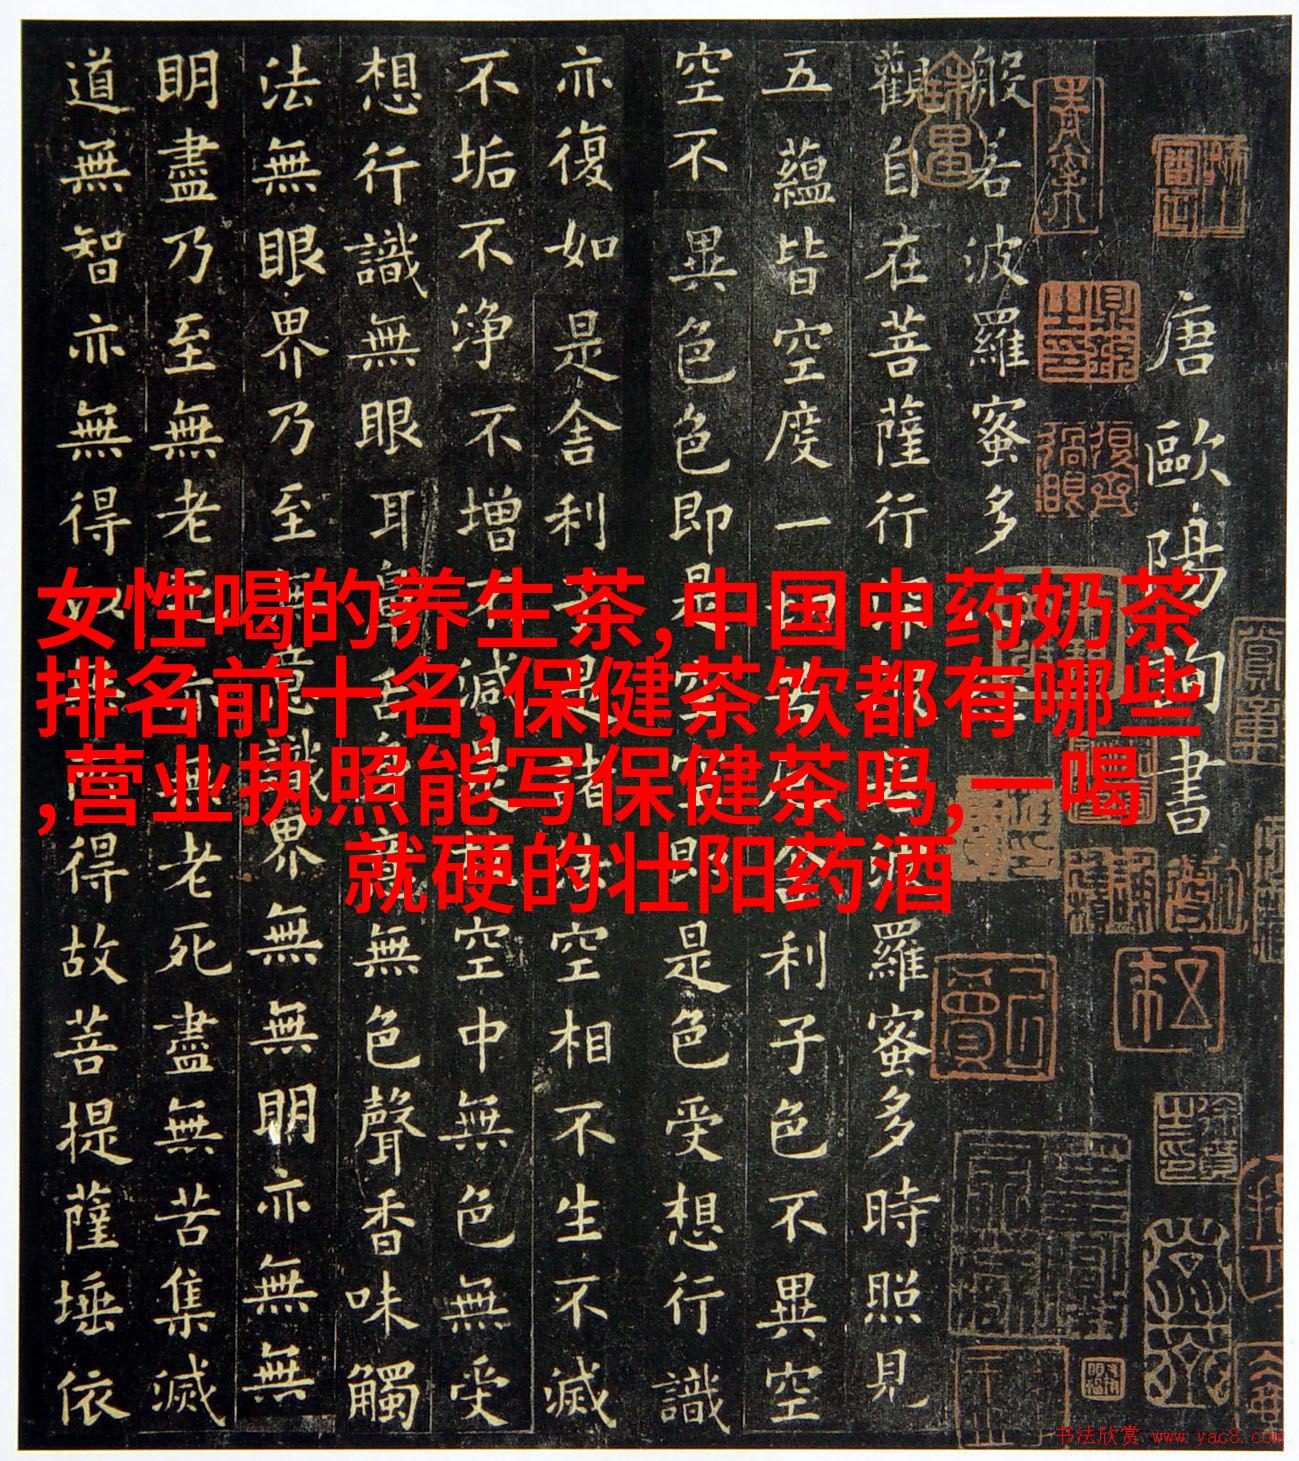 唐歐陽詢書
般若波羅蜜多
觀自在菩薩行深般若波羅蜜多時照見
五蘊皆空度一切苦厄舍利子色不異空
空不異色色即是空空即是色受想行識
亦復如是舍利子是諸法空相不生不滅
不垢不淨不增不減是故空中無色無受
想行識無眼耳鼻舌身意無色聲香味觸
法無眼界乃至無意識界無無明亦無無
明盡乃至無老死亦無老死盡無苦集滅
道無智亦無得以無所得故菩提薩埵依
女性喝的养生茶,中国中药奶茶
排名前十名,保健茶饮都有哪些
,营业执照能写保健茶吗,一喝
就硬的壮阳药酒
书法欣赏 www.yac8.com